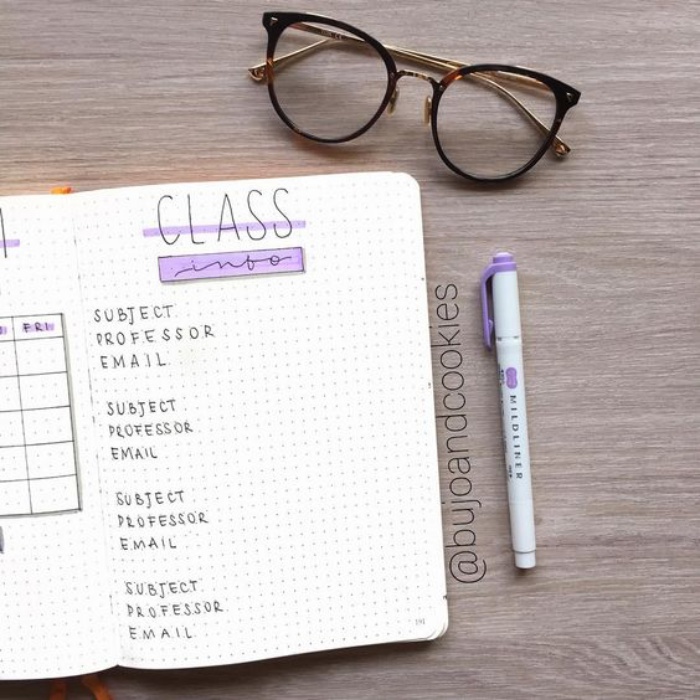 FRI
CLASS
info
SUBJECT
PROFESSOR
EMAIL
SUBJECT
PROFESSOR
EMAIL
SUBJECT
PROFESSOR
EMAIL
SUBJECT
PROFESSOR
EMAIL
@bujoandcookies
MILDLINER